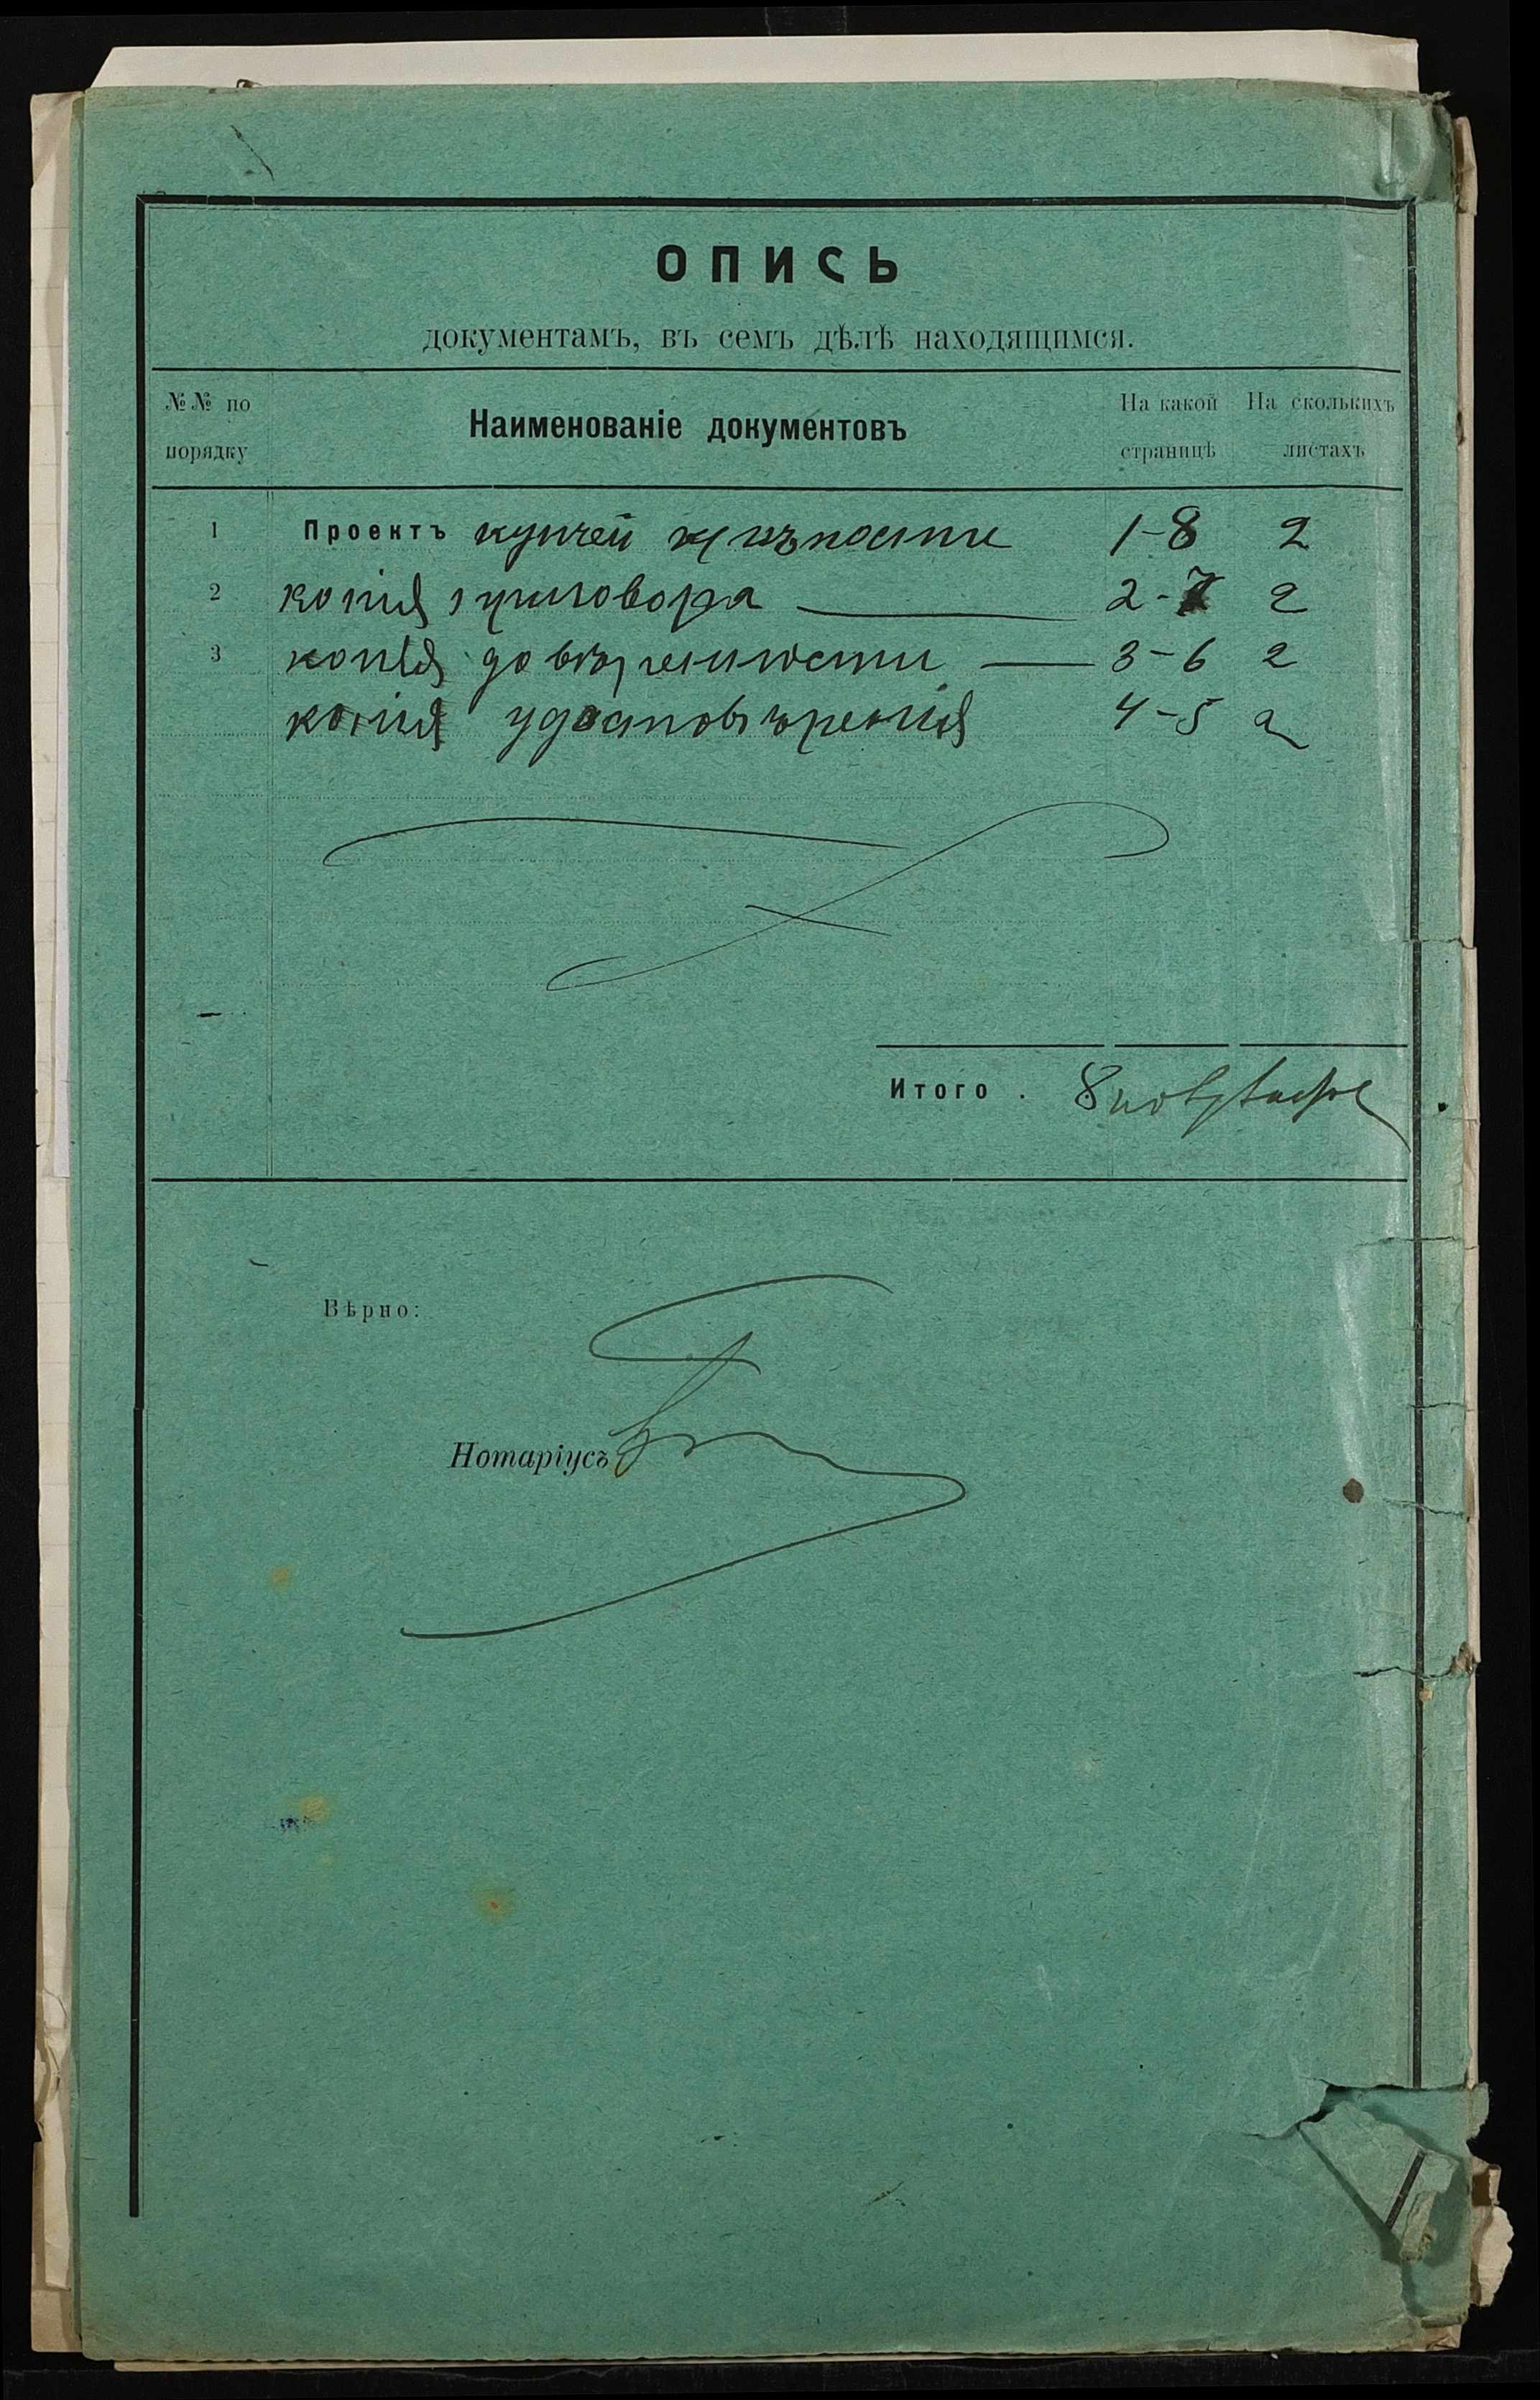 ОПИСЬ
документамъ, въ семъ дѣлѣ находящимся.
№№ по порядку
Наименованіе документовъ
На какой страницѣ
На сколькихъ листахъ
1 Проектъ купчей крѣпости 1-8 2
2 копія приговора 2-7 2
3 копія довѣренности 3-6 2
копія удостовѣренія 4-5 2
Итого . 8
Вѣрно:
Нотаріусъ